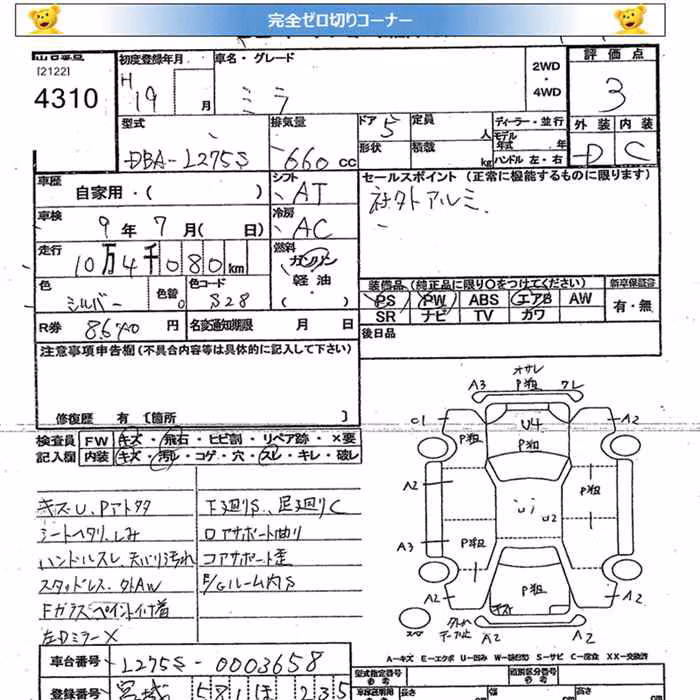 完全ゼロ切りコーナー
出品番号
[2122]
4310
初度登録年月
H 19 月
車名・グレード
ミラ
2WD
・
4WD
評価点
3
型式
DBA-L275S
排気量
660 cc
ドア
5
定員
人
ディーラー・並行
モデル年式 年
形状
積載
kg
ハンドル 左・右
外装
内装
D
C
車歴
自家用・( )
シフト
AT
セールスポイント (正常に機能するものに限ります)
社外アルミ
車検
9年7月( 日)
冷房
AC
走行
10万4千080km
燃料
ガソリン
軽油
・( )
色
シルバー
色替
色コード
S28
装備品 (純正品に限り○をつけてください)
新車保証書
PS PW ABS エアB AW
SR ナビ TV カワ
有・無
R券 8640 円
名変通知期限 月 日
後日品
注意事項申告欄 (不具合内容等は具体的に記入して下さい)
修復歴 有 [箇所 ]
検査員
記入欄
FW キズ・飛石・ヒビ割・リペア跡・×要
内装 キズ・汚レ・コゲ・穴・スレ・キレ・破レ
キズU、Pアトタタ
シートヘタリ、しみ
ハンドルスレ、天バリ汚れ
スタッドレス、外AW
Fガラスペイント付着
左Dミラー×
下廻りS、足廻りC
ロアサポート曲り
コアサポート歪
F/Gルーム内S
オサレ
A3 P粗 クレ
U4
P粗
A2
P粗
P粗
A2
U2
A3
P粗
P粗
P粗
A2
A2
A2
A2
A-キズ E-エクボ U-凹み S-サビ C-腐食 XX-交換済
車台番号
L275S-0003658
登録番号
宮城 581 ほ 235
型式指定番号
類別区分番号
長さ
幅
高さ